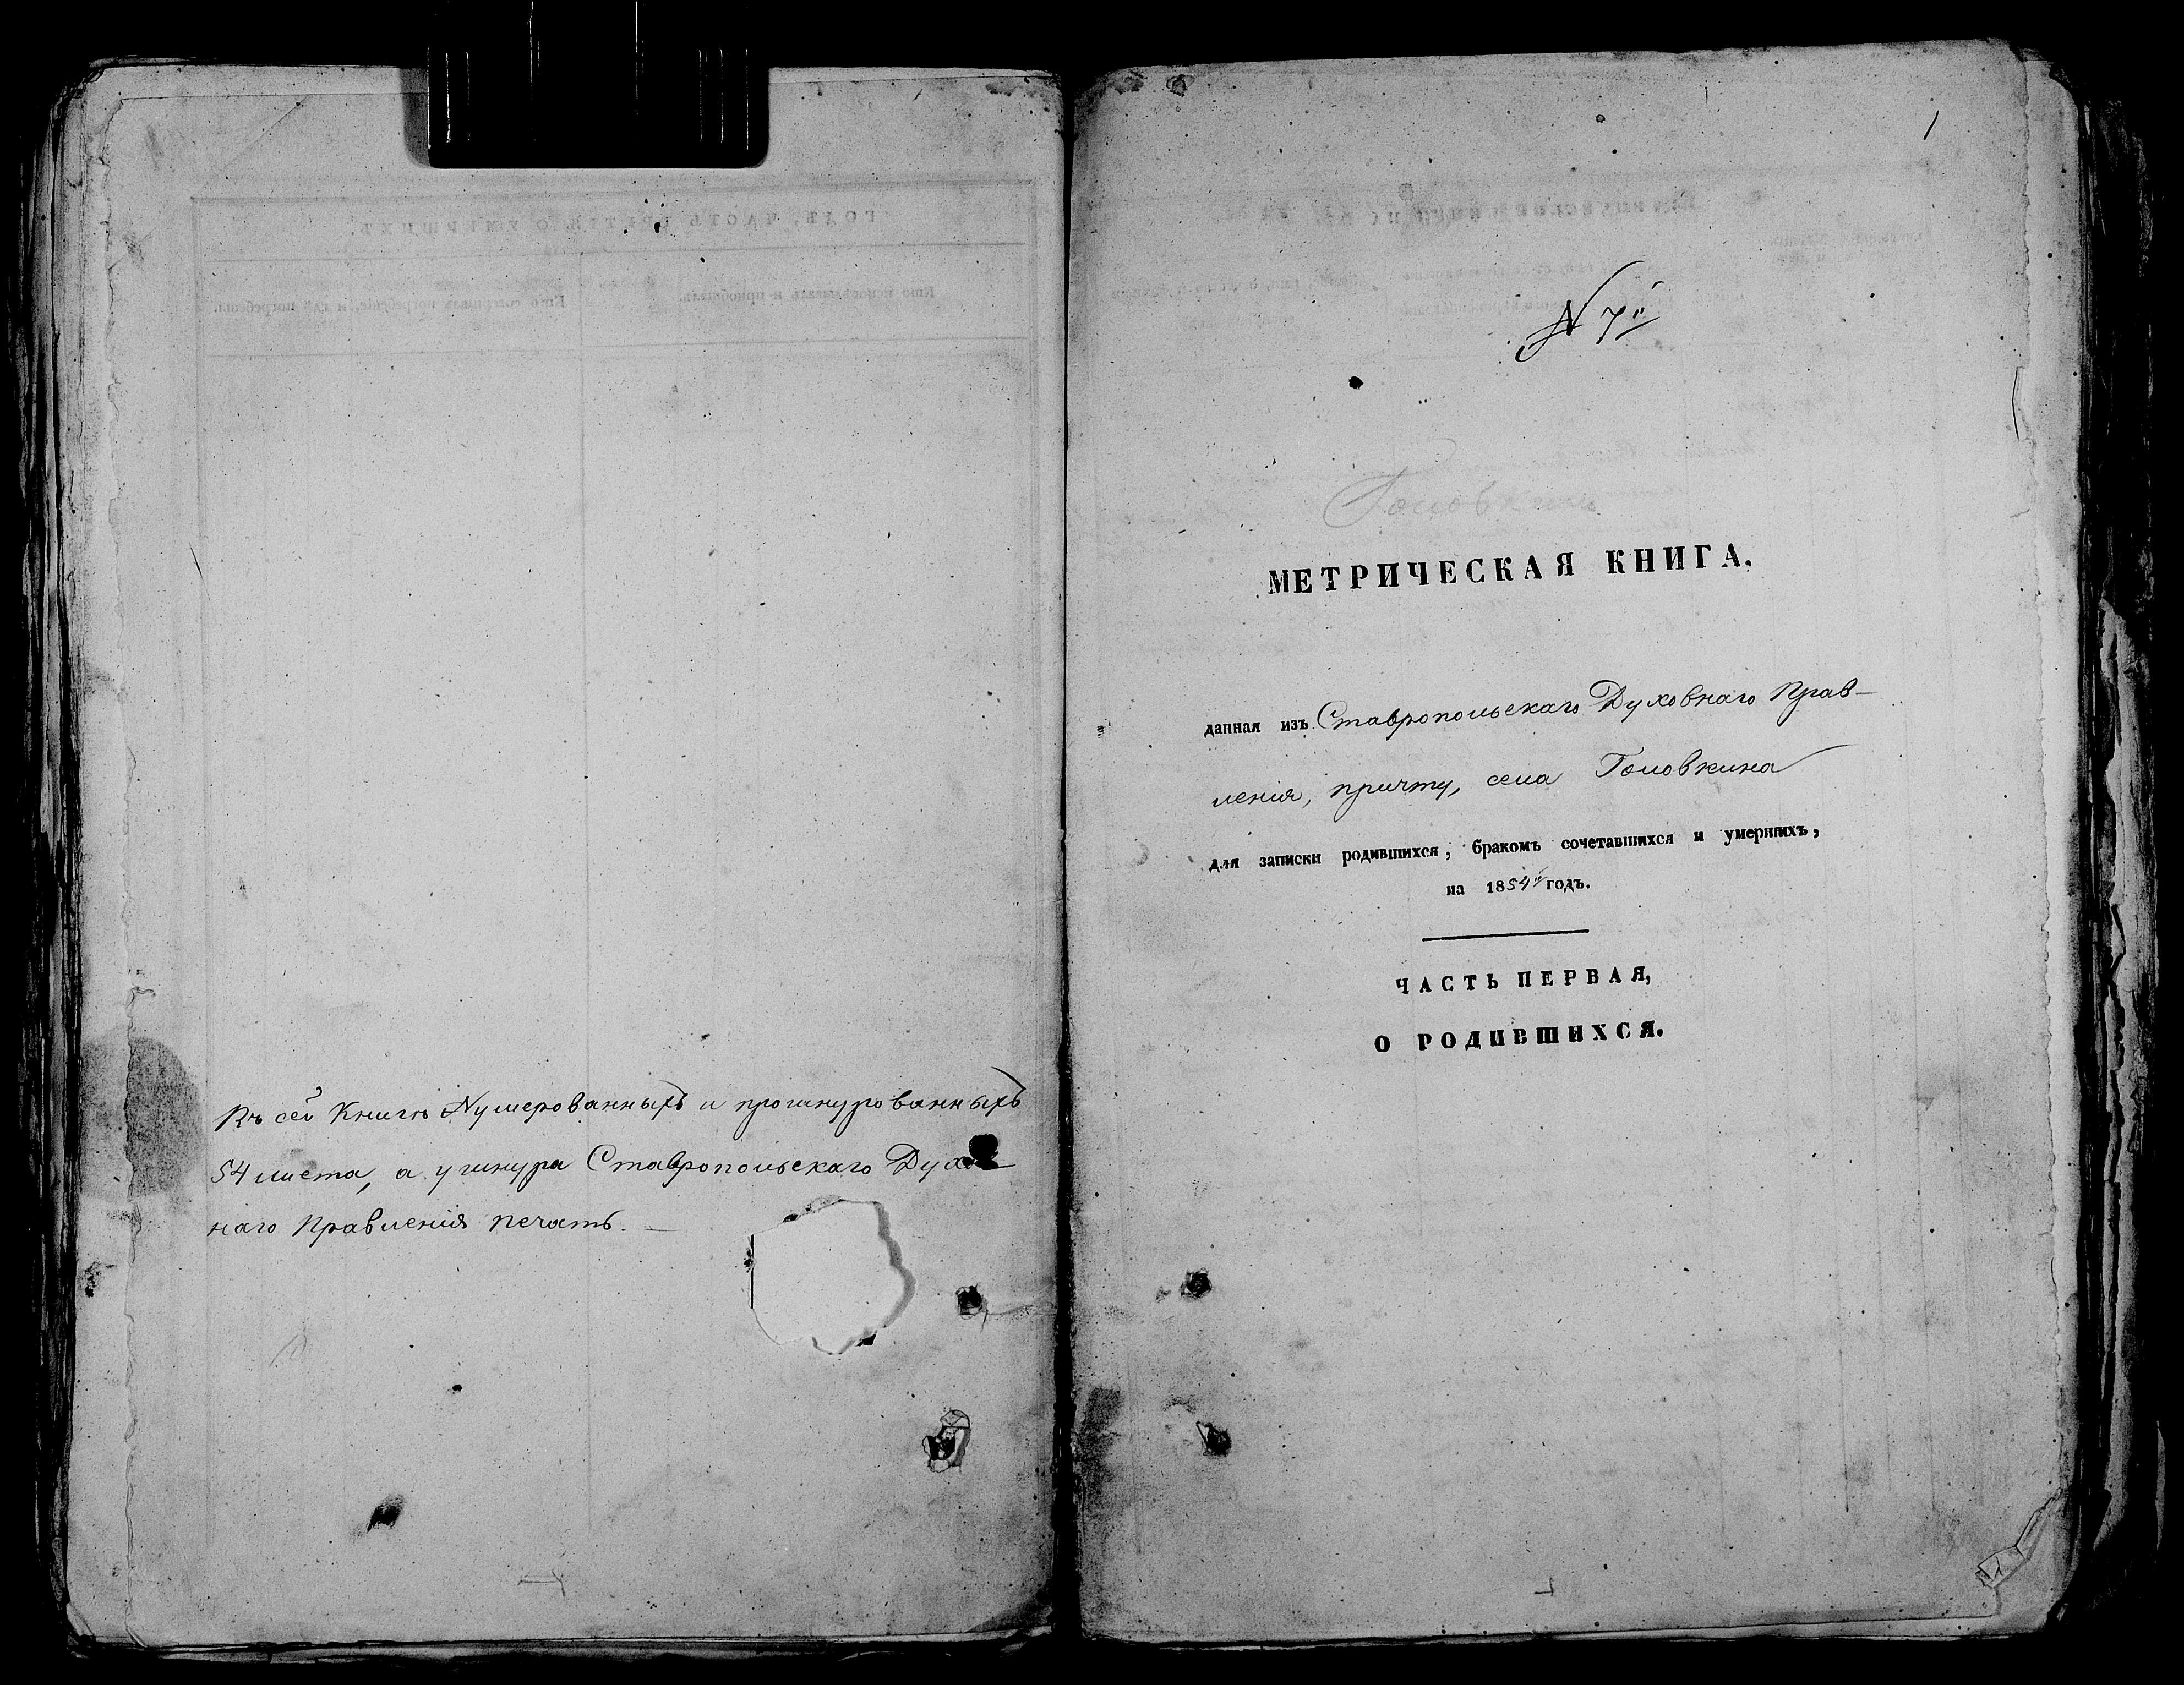 Въ сей Книгѣ Нумерованныхъ и прошнурованныхъ
54 листа, а у шнура Ставропольскаго Духов
наго Правленія печать.
1
N 7й
Головкино
МЕТРИЧЕСКАЯ КНИГА,
данная изъ Ставропольскаго Духовнаго Прав-
ленія, причту, села Головкина
для записки родившихся, бракомъ сочетавшихся и умершихъ,
на 1854й годъ.
ЧАСТЬ ПЕРВАЯ,
О РОДИВШИХСЯ.